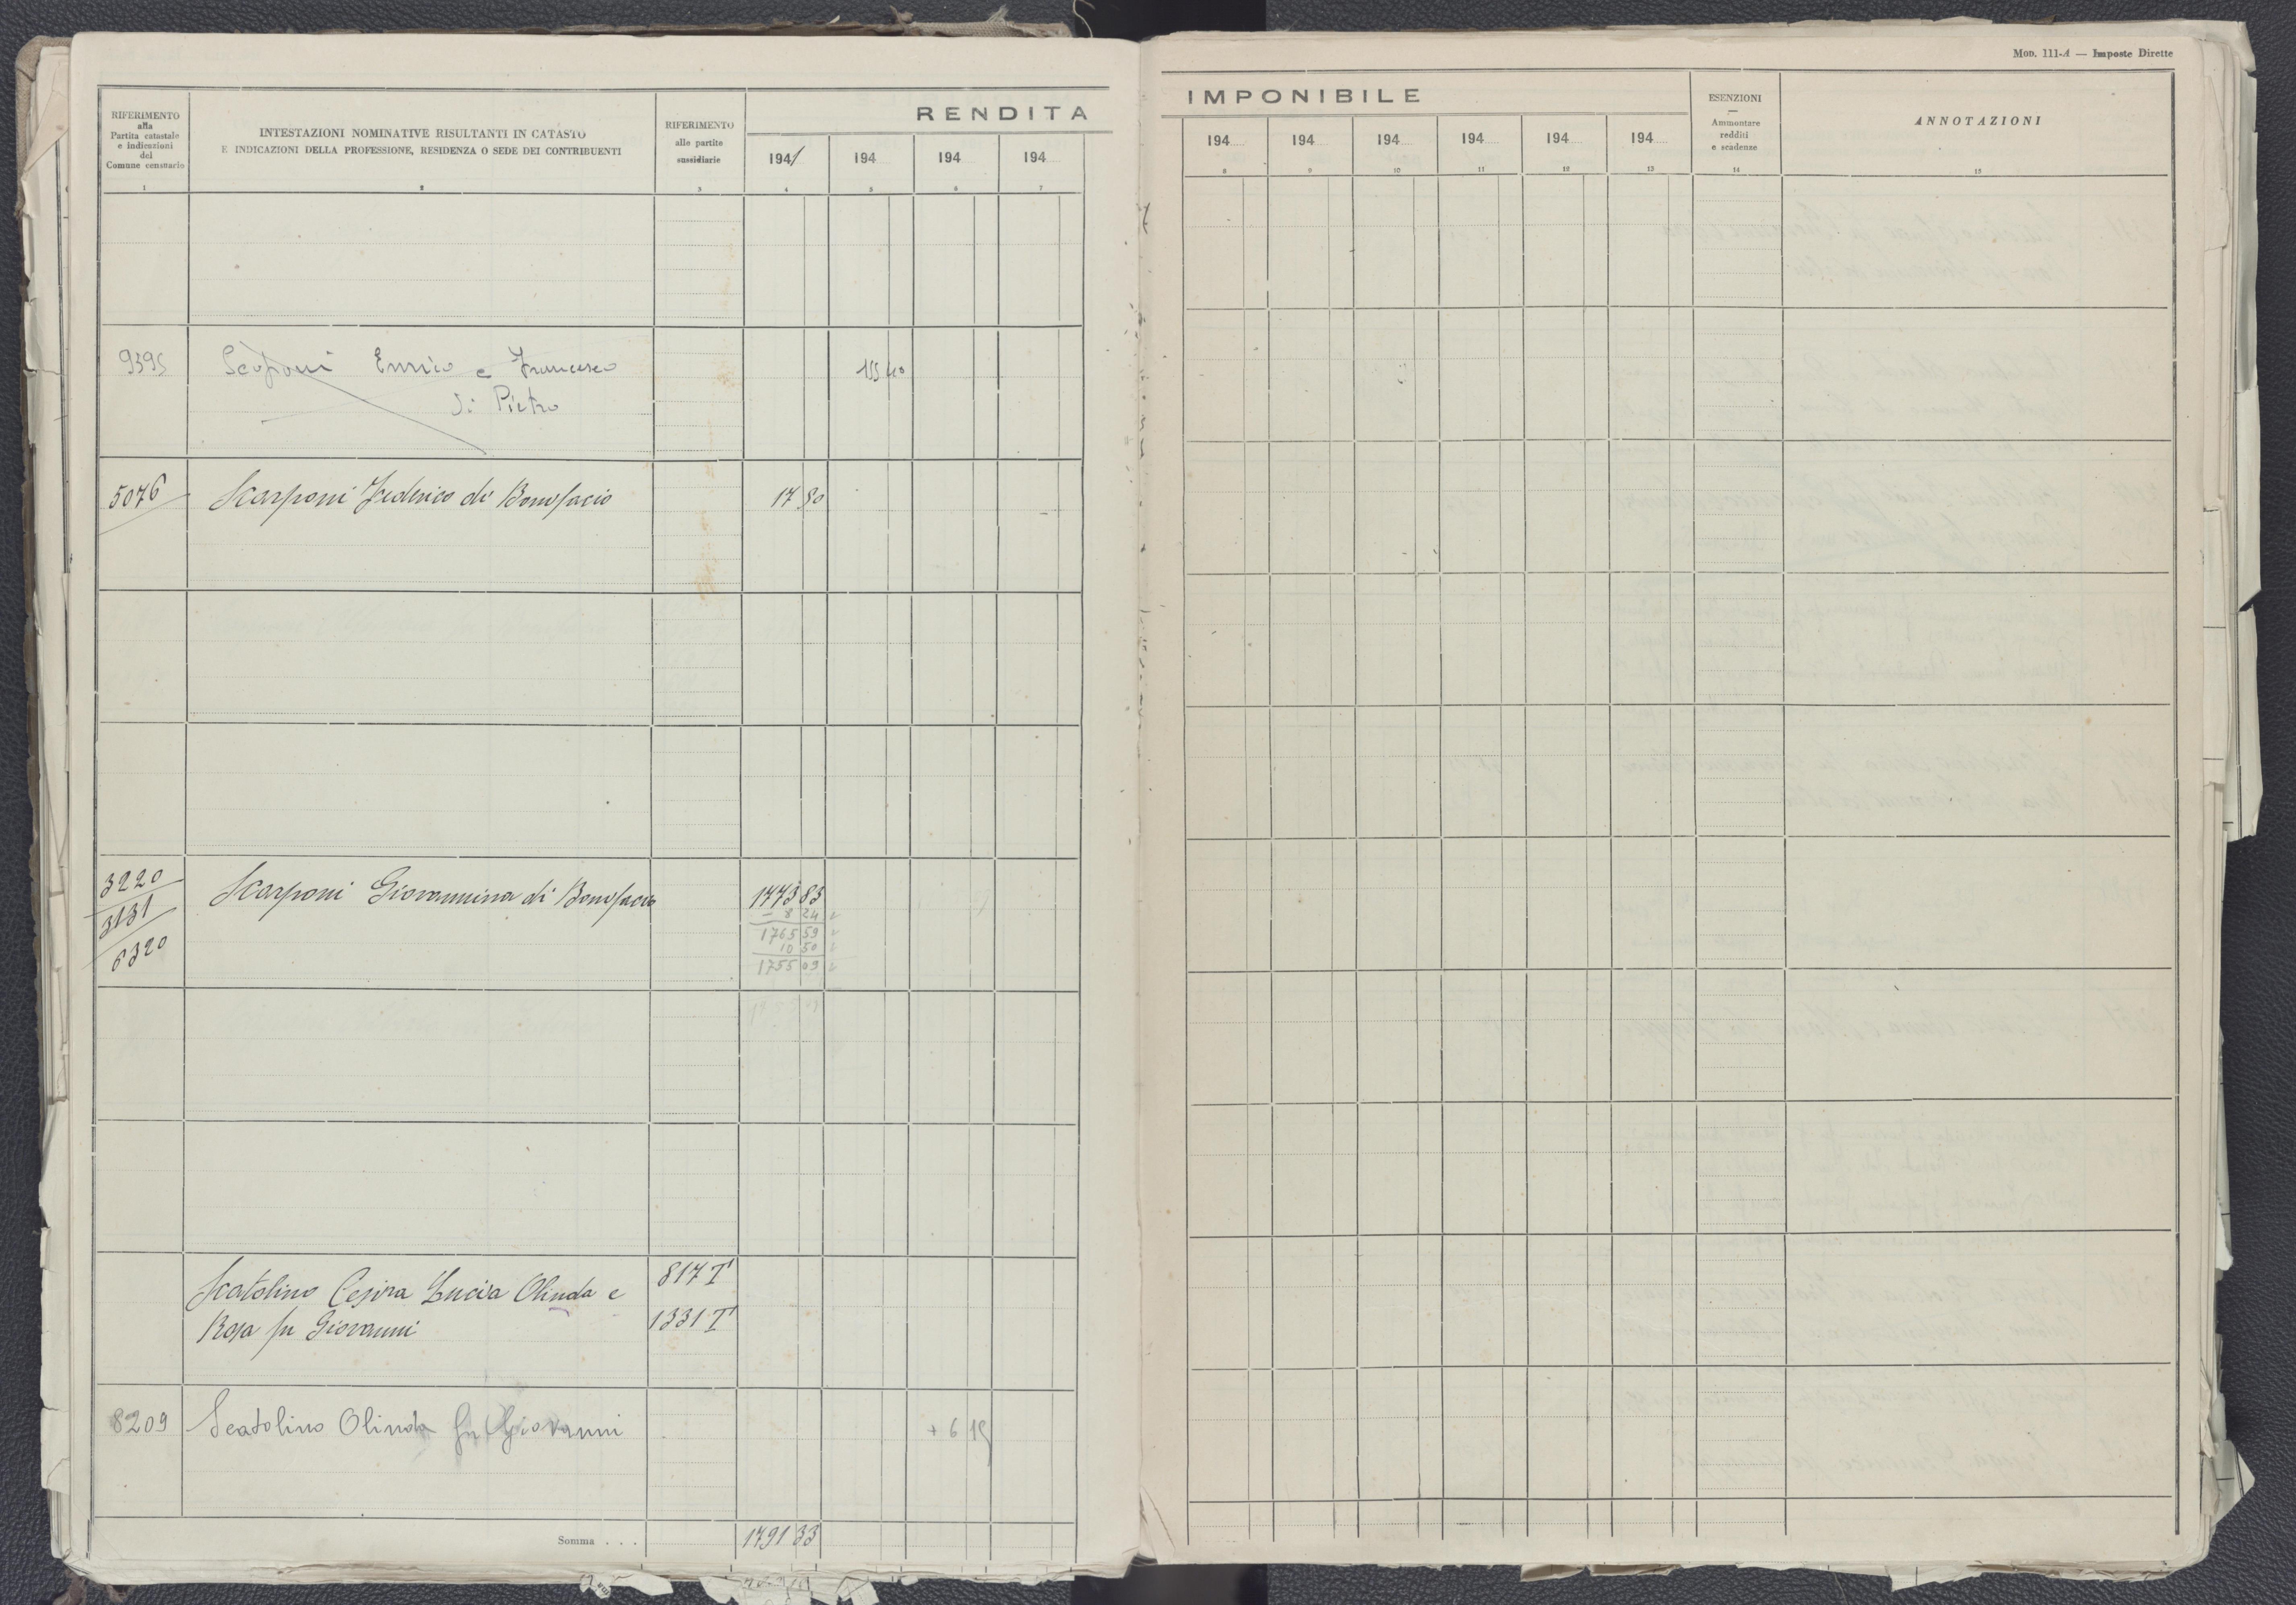 Mod. 111-A — Imposte Dirette
RIFERIMENTO
alla
Partita catastale
e indicazioni
del
Comune censuario
1
INTESTAZIONI NOMINATIVE RISULTANTI IN CATASTO
E INDICAZIONI DELLA PROFESSIONE, RESIDENZA O SEDE DEI CONTRIBUENTI
2
RIFERIMENTO
alle partite
sussidiarie
3
RENDITA
1941 194 194 194
4 5 6 7
IMPONIBILE
194 194 194 194 194 194
8 9 10 11 12 13
ESENZIONI
—
Ammontare
redditi
e scadenze
14
ANNOTAZIONI
15
9395 Enrico e Francesco 155 40
di Pietro
5076 Scarponi Federico di Bonifacio 17 50
3220 Scarponi Giovannina di Bonifacio 1773 83
3131 – 8 24
6320 1765 59
10 50
1755 09
Scatolino Cesira Lucia Olinda e 817 T
Rosa fu Giovanni 1331 T
8209 Scatolino Olinda fu Giovanni + 6 19
Somma . . . 1791 33